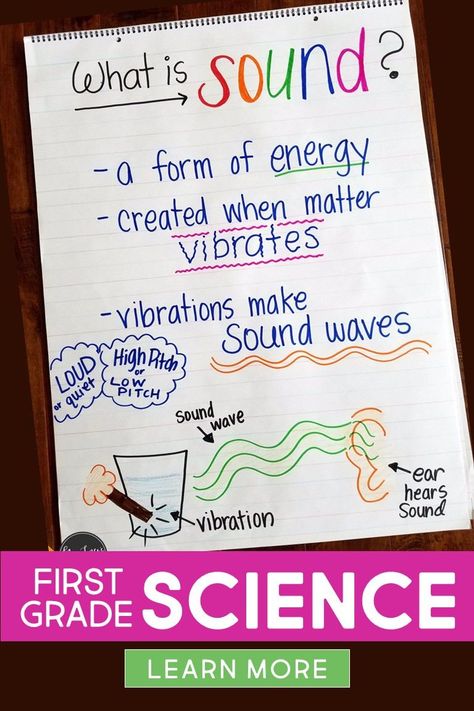 What is sound?
- a form of energy
- created when matter
vibrates
- vibrations make
sound waves
LOUD
or quiet
High Pitch
or
LOW
PITCH
sound
wave
vibration
ear
hears
sound
FIRST
GRADE SCIENCE
LEARN MORE